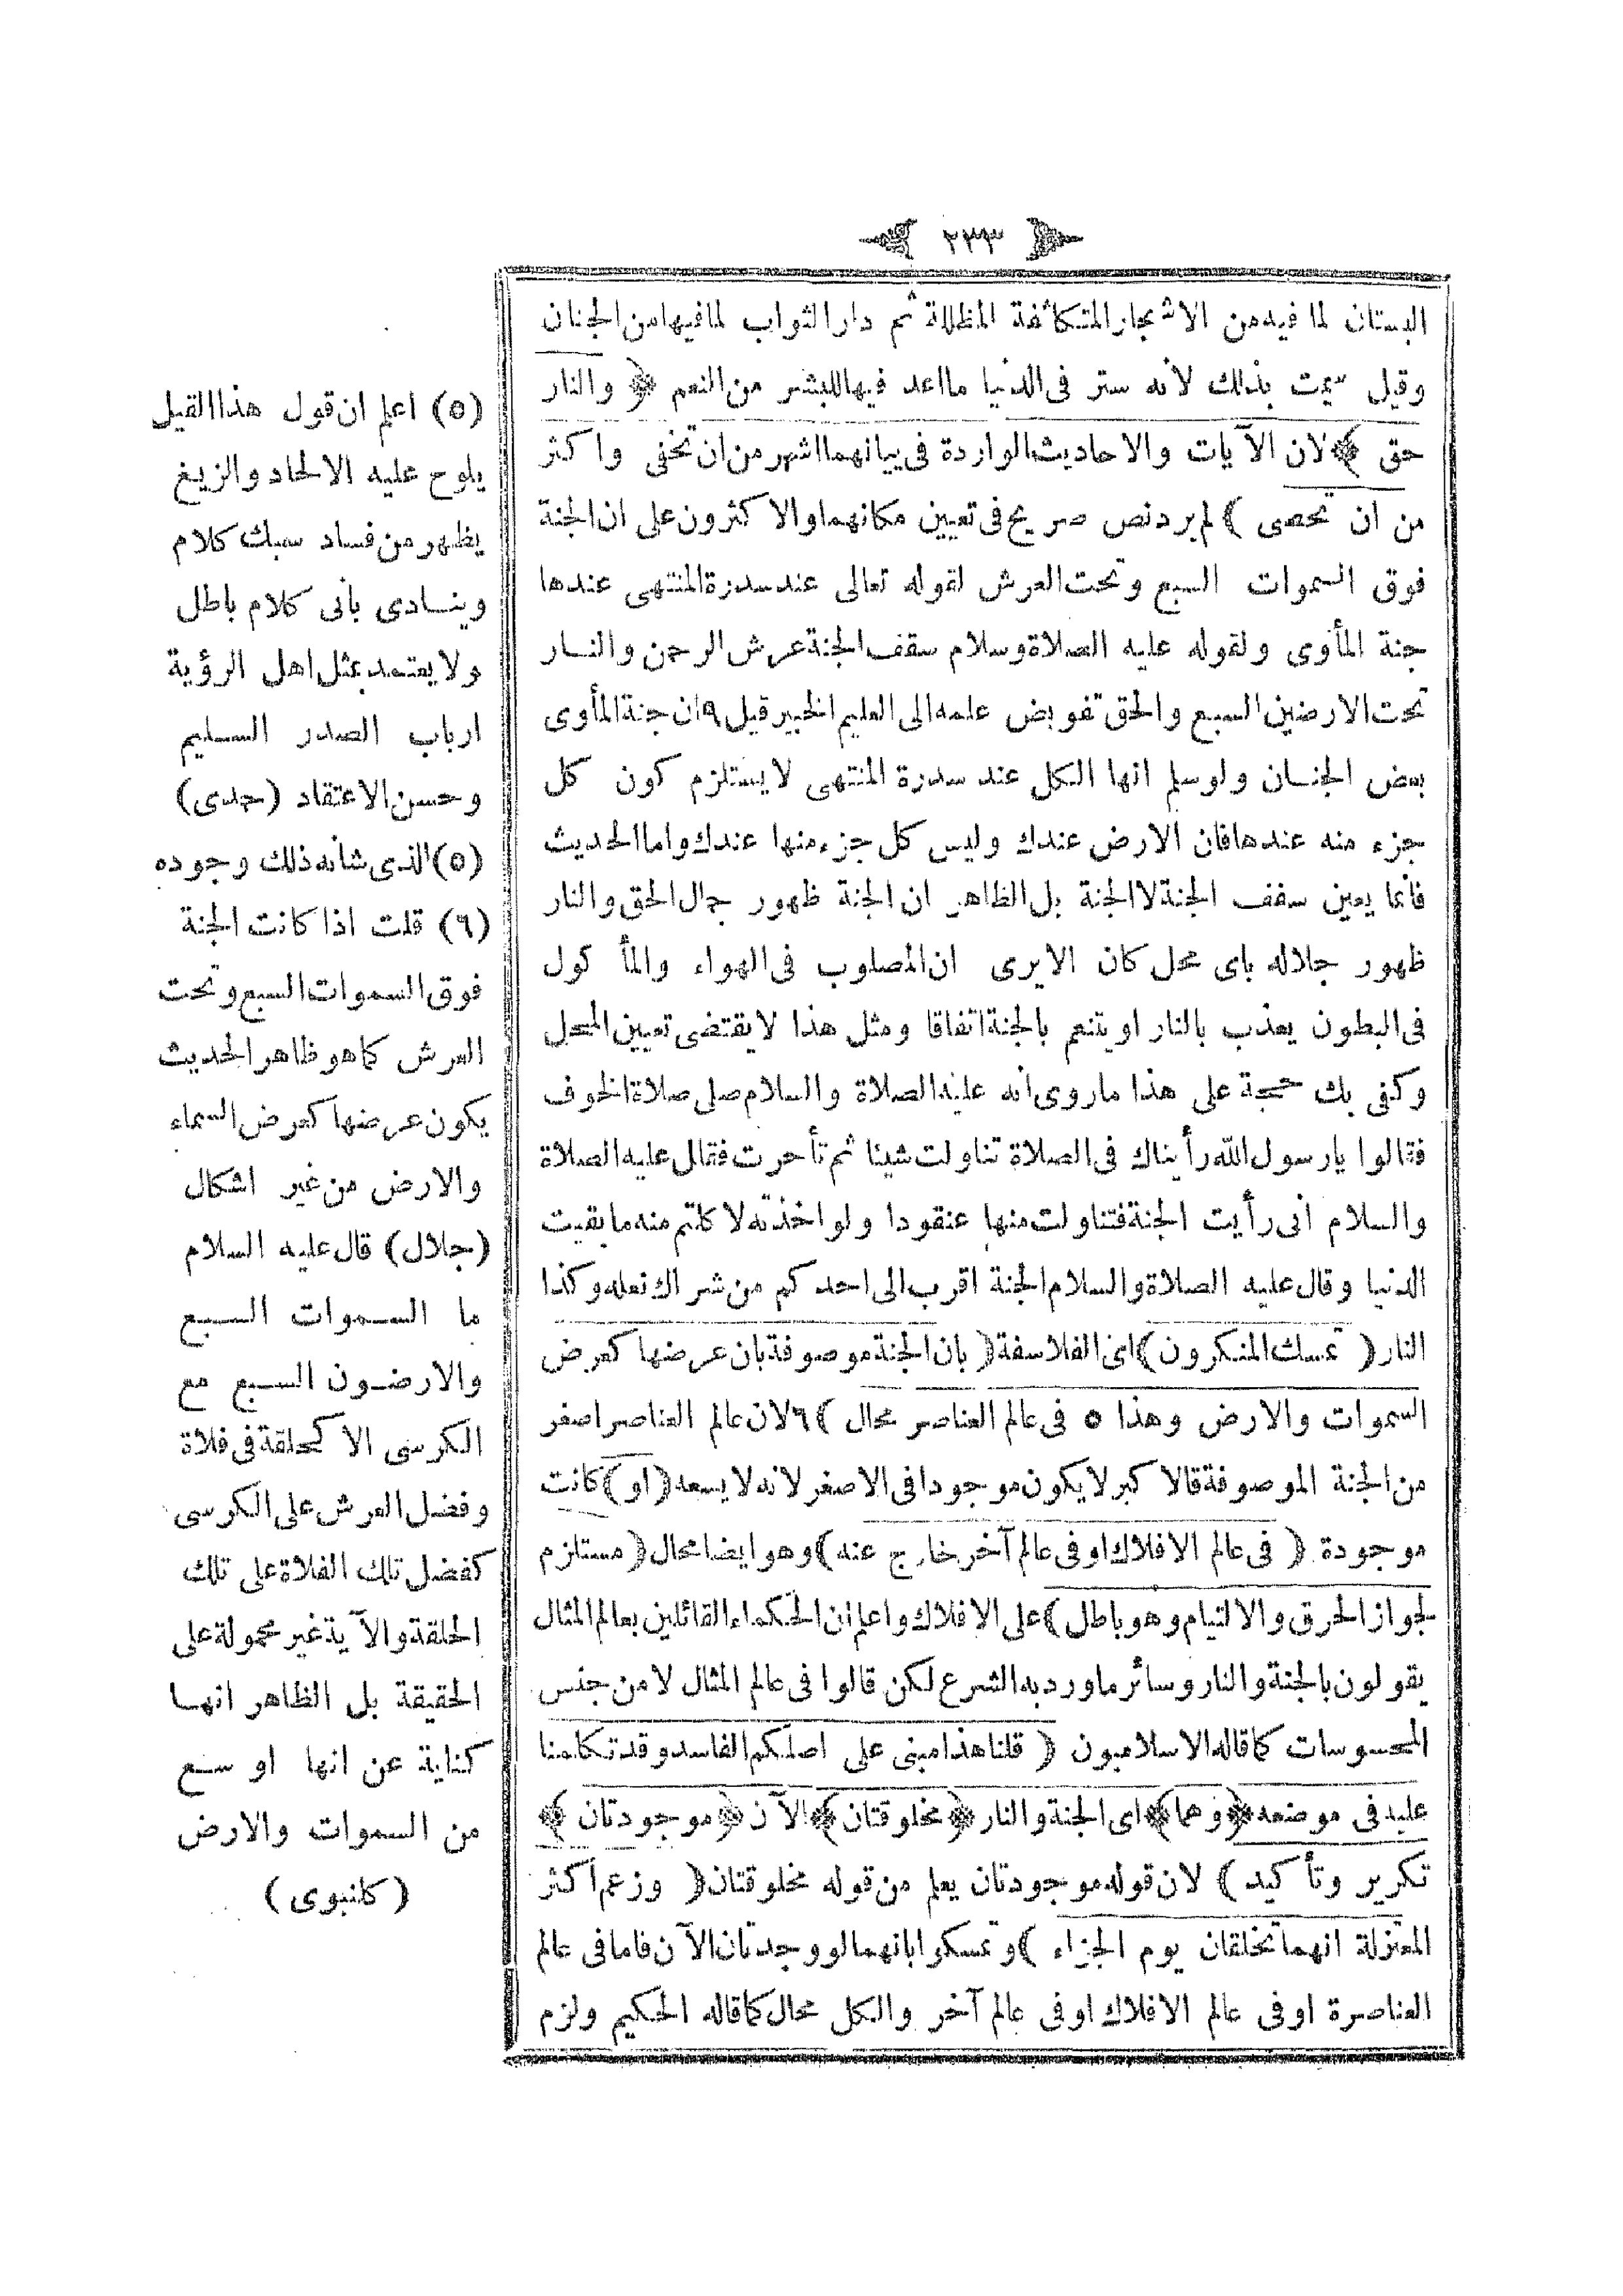 ٢٣٣
البستان لما فيه من الاشجار المتكاثفة المظللة ثم دار الثواب لما فيها من الجنان
وقيل سميت بذلك لانه ستر فى الدنيا ما اعد فيها للبشر من النعم ﴿ والنار
حق ﴾ لان الآيات والاحاديث الواردة فى بيانهما اشهر من ان تخفى واكثر
من ان تحصى ) لم يرد نص صريح فى تعيين مكانهما والاكثرون على ان الجنة
فوق السموات السبع وتحت العرش لقوله تعالى عند سدرة المنتهى عندها
جنة المأوى ولقوله عليه الصلاة وسلام سقف الجنة عرش الرحمن والنار
تحت الارضين السبع والحق تفويض علمه الى العليم الخبير قيل ٩ ان جنة المأوى
بعض الجنان ولو سلم انها الكل عند سدرة المنتهى لا يستلزم كون كل
جزء منه عندها فان الارض عندك وليس كل جزء منها عندك واما الحديث
فأنما يعين سقف الجنة لا الجنة بل الظاهر ان الجنة ظهور جمال الحق والنار
ظهور جلاله باى محل كان الا يرى ان المصلوب فى الهواء والمأكول
فى البطون يعذب بالنار او يتنعم بالجنة اتفاقا ومثل هذا لا يقتضى تعيين المحل
وكفى بك حجة على هذا ما روى انه عليه الصلاة والسلام صلى صلاة الخوف
فقالوا يا رسول الله رأيناك فى الصلاة تناولت شيئا ثم تأخرت فقال عليه الصلاة
والسلام انى رأيت الجنة فتناولت منها عنقودا ولو اخذته لاكلتم منه ما بقيت
الدنيا وقال عليه الصلاة والسلام الجنة اقرب الى احدكم من شراك نعله وكذا
النار ( تمسك المنكرون ) اى الفلاسفة ( بان الجنة موصوفة بان عرضها كعرض
السموات والارض وهذا ٥ فى عالم العناصر محال ) ٦ لان عالم العناصر اصغر
من الجنة الموصوفة قالاكبر لا يكون موجودا فى الاصغر لانه لا يسعه ( او ) كانت
موجودة ( فى عالم الافلاك او فى عالم آخر خارج عنه ) وهو ايضا محال ( مستلزم
لجواز الخرق والالتيام وهو باطل ) على الافلاك واعلم ان الحكماء القائلين بعالم المثال
يقولون بالجنة والنار وسائر ما ورد به الشرع لكن قالوا فى عالم المثال لا من جنس
المحسوسات كما قاله الاسلاميون ( قلنا هذا مبنى على اصلكم الفاسد وقد تكلمنا
عليه فى موضعه ﴿ وهما ﴾ اى الجنة والنار ﴿ مخلوقتان ﴾ الآن ﴿ موجودتان ﴾
تكرير وتأكيد ) لان قوله موجودتان يعلم من قوله مخلوقتان ( وزعم اكثر
المعتزلة انهما تخلقان يوم الجزاء ) وتمسكوا بانهما لو وجدتان الآن فاما فى عالم
العناصرة او فى عالم الافلاك او فى عالم آخر والكل محال كما قاله الحكيم ولزم
(٥) اعلم ان قول هذا القيل
يلوح عليه الالحاد والزيغ
يظهر من فساد سبك كلام
وينادى بانى كلام باطل
ولا يعتمد بمثل اهل الرؤية
ارباب الصدر السليم
وحسن الاعتقاد (جدى)
(٥) الذى شانه ذلك وجوده
(٦) قلت اذا كانت الجنة
فوق السموات السبع وتحت
العرش كما هو ظاهر الحديث
يكون عرضها كعرض السماء
والارض من غير اشكال
(جلال) قال عليه السلام
ما السموات السبع
والارضون السبع مع
الكرسى الا كحلقة فى فلاة
وفضل العرش على الكرسى
كفضل تلك الفلاة على تلك
الحلقة والآية غير محمولة على
الحقيقة بل الظاهر انها
كناية عن انها اوسع
من السموات والارض
(كلنبوى)